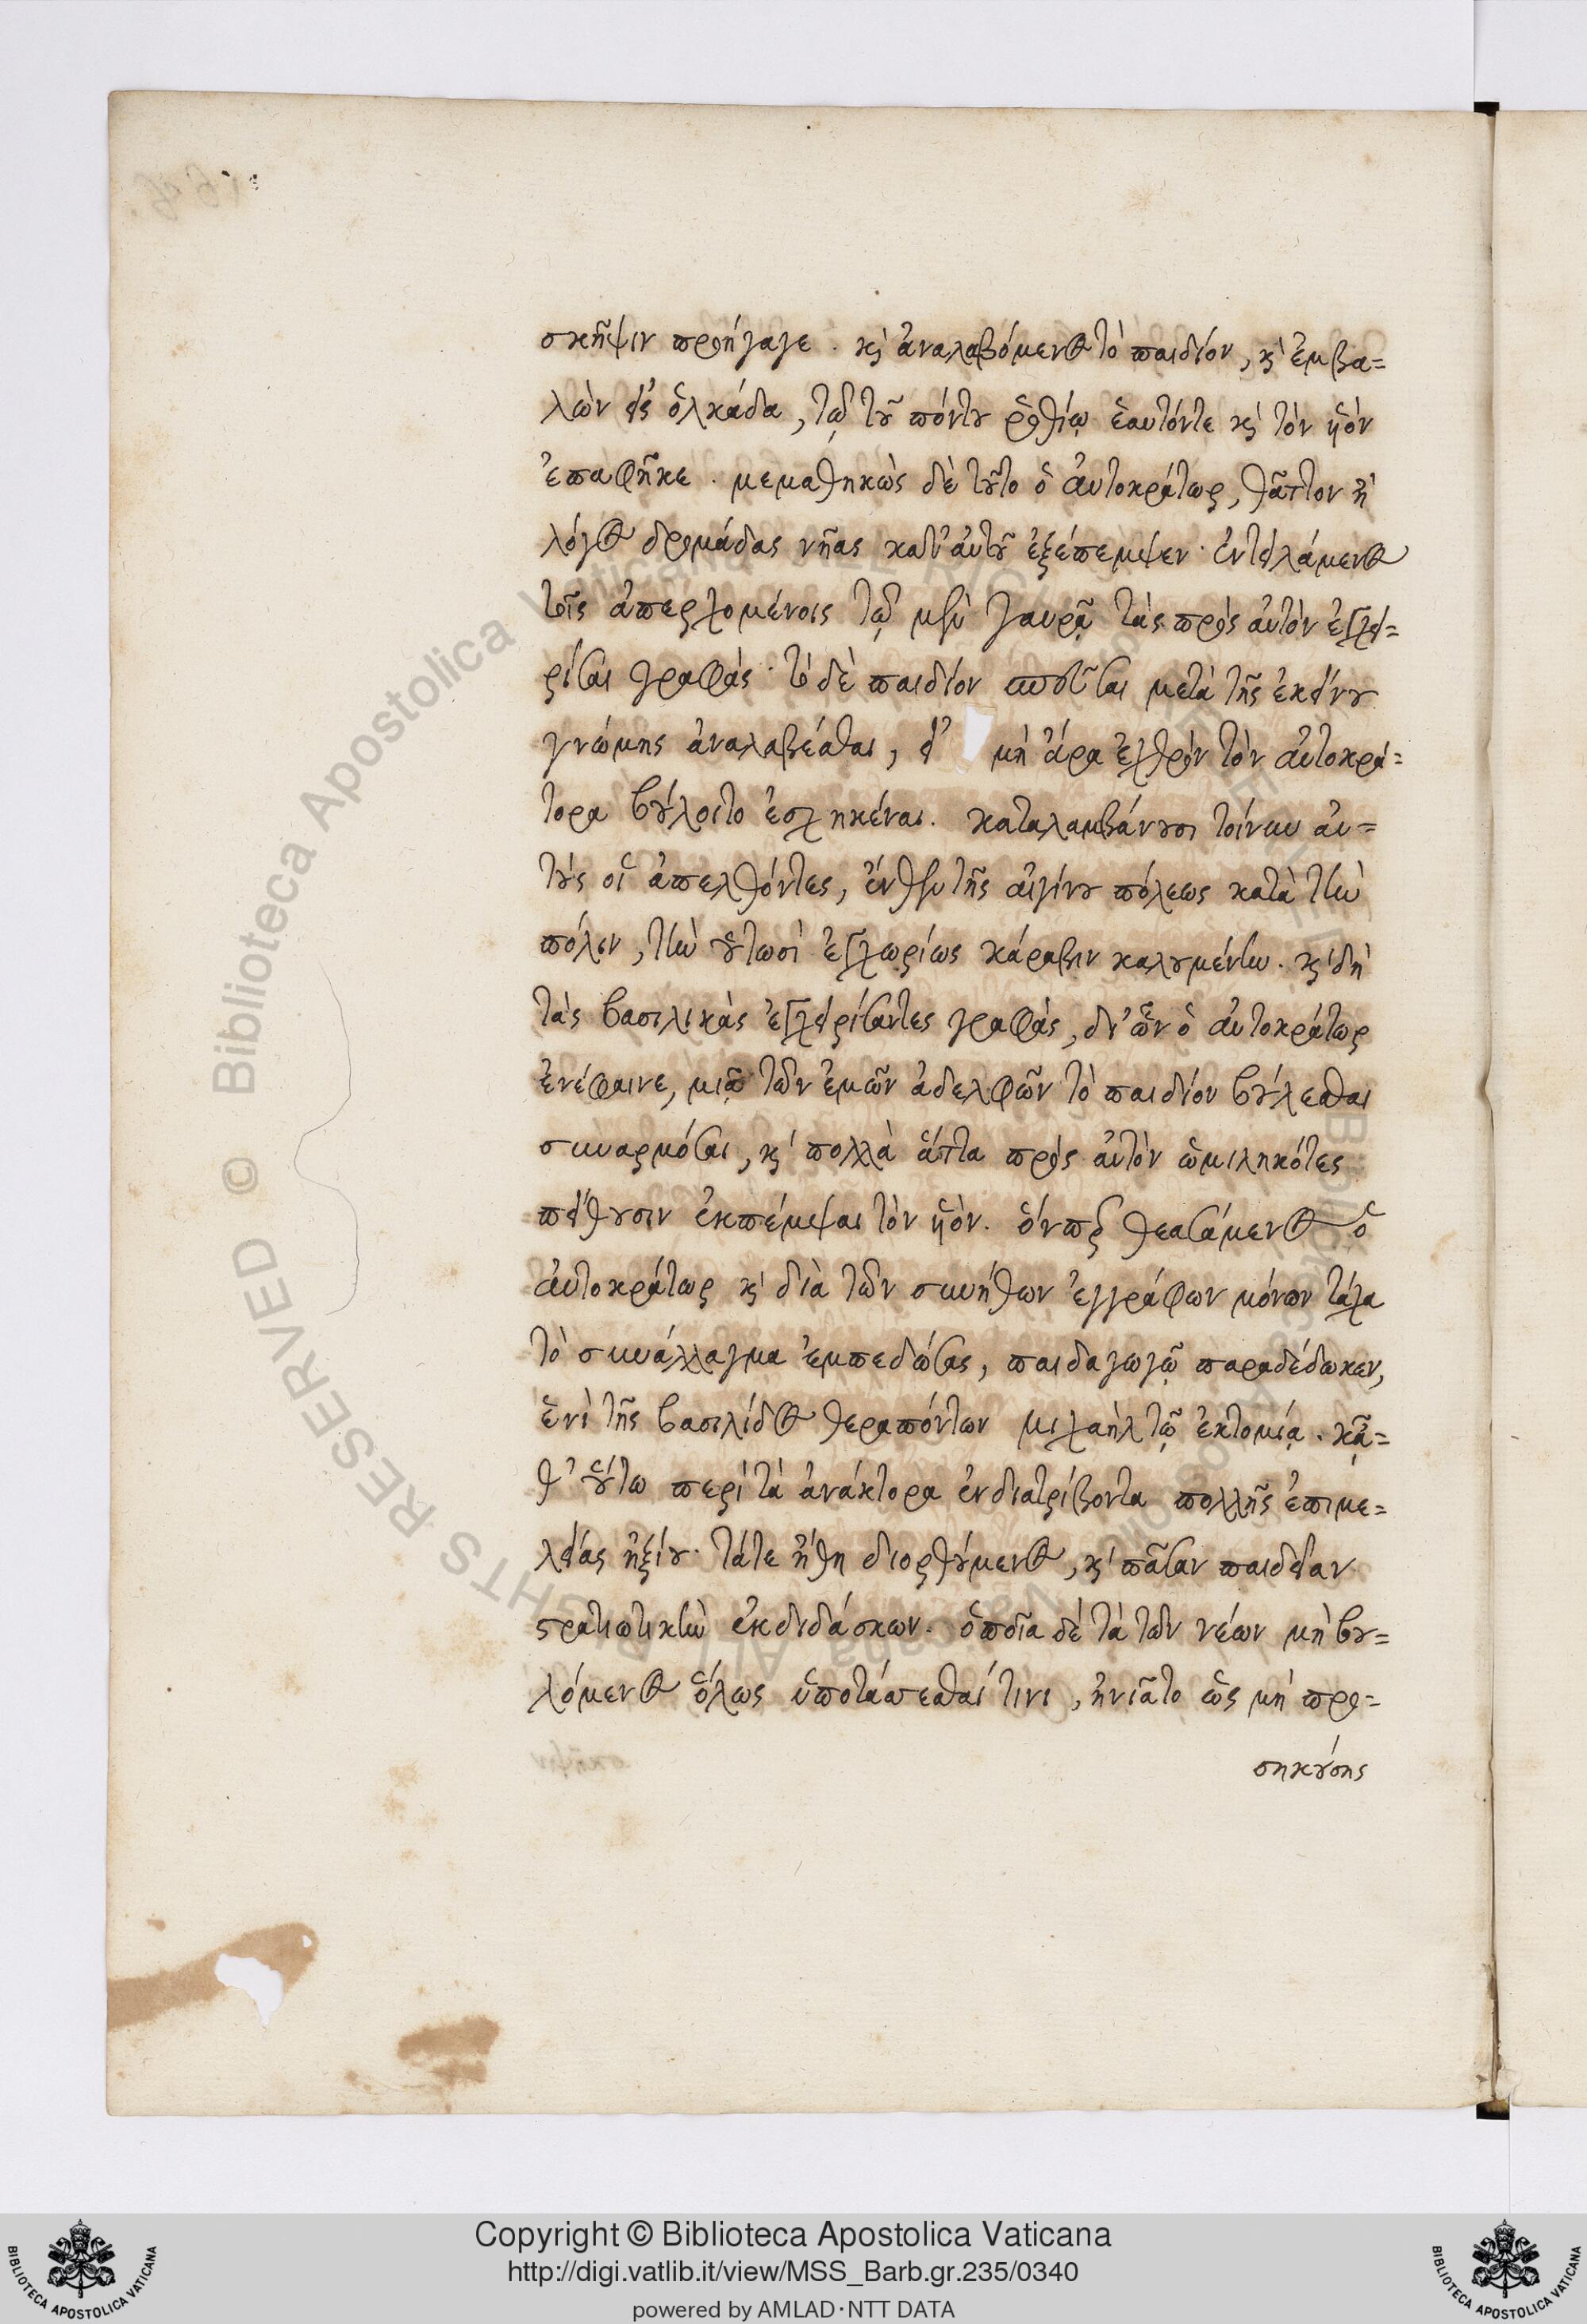 σκῆψιν προήγαγε. κὶ ἀναλαβόμενος τὸ παιδίον, κὶ ἐμβα=
λὼν εἰς ὁλκάδα, τῷ τοῦ πόντου ῥοθίῳ ἑαυτόντε κὶ τὸν ὑὸν
ἐπαφῆκε. μεμαθηκὼς δὲ τοῦτο ὁ αὐτοκράτωρ, θᾶττον ἢ
λόγος δρομάδας νῆας κατ' αὐτοῦ ἐξέπεμψεν· ἐντειλάμενος
τοῖς ἀπερχομένοις τῷ μὲν Γαυρᾷ τὰς πρὸς αὐτὸν ἐγχει=
ρίσαι γραφάς· τὸ δὲ παιδίον μετὰ τῆς ἐκείνου
γνώμης ἀναλαβέσθαι, εἰ μὴ ἄρα ἐχθρὸν τὸν αὐτοκρά=
τορα βούλοιτο ἐσχηκέναι. καταλαμβάνουσι τοίνυν αὐ=
τοὺς οἱ ἀπελθόντες, ἔνθεν τῆς αἰγίνου πόλεως κατὰ τὴν
πόλιν, τὴν οὑτωσὶ ἐγχωρίως κάραβιν καλουμένην. κὶ δὴ
τὰς βασιλικὰς ἐγχειρίσαντες γραφάς, δι' ὧν ὁ αὐτοκράτωρ
ἐνέφαινε, μιᾷ τῶν ἐμῶν ἀδελφῶν τὸ παιδίον βούλεσθαι
συναρμόσαι, κὶ πολλὰ ἄττα πρὸς αὐτὸν ὡμιληκότες
πείθουσιν ἐκπέμψαι τὸν ὑὸν. ὅνπερ θεασάμενος ὁ
αὐτοκράτωρ κὶ διὰ τῶν συνήθων ἐγγράφων μόνον τάχα
τὸ συνάλλαγμα ἐμπεδώσας, παιδαγωγῷ παραδέδωκεν,
ἑνὶ τῆς βασιλίδος θεραπόντων μιχαὴλ τῷ ἐκτομίᾳ. κᾆ=
θ' οὕτω περὶ τὰ ἀνάκτορα ἐνδιατρίβοντα πολλῆς ἐπιμε=
λείας ἠξίου· τάτε ἤθη διορθούμενος, κὶ πᾶσαν παιδείαν
στρατιωτικὴν ἐκδιδάσκων. ὁποῖα δὲ τὰ τῶν νέων μὴ βου=
λόμενος ὅλως ὑποτάσσεσθαί τινι, ἠνιᾶτο ὡς μὴ προ=
σηκούσης
Copyright © Biblioteca Apostolica Vaticana
http://digi.vatlib.it/view/MSS_Barb.gr.235/0340
powered by AMLAD·NTT DATA